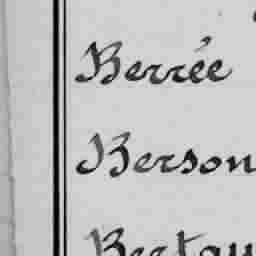 Berrée
Berson